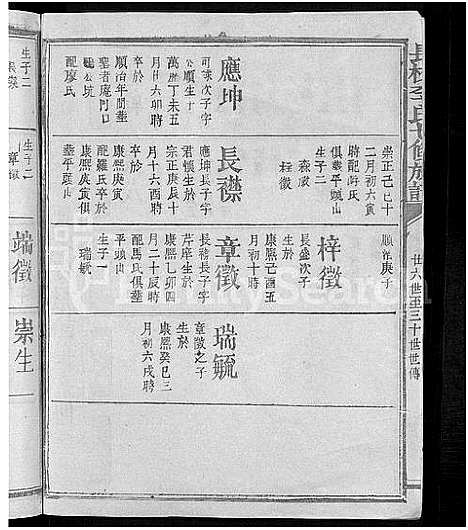 長校李氏七修族譜
廿六世至三十世世傳
應坤
可求次子字
公順生於
萬曆丁未五
月廿六卯時
卒於
順治年間塟
配廖氏
崇正己巳十
二月初六寅
時配許氏
俱塟平頭山
生子二
長襟
應坤長子字
君懷生於
宗正庚辰十
月十六酉時
卒於
康熙庚寅
配羅氏卒於
康熙庚寅俱
塟平頭山
生子二
順治庚子
梓徵
長盛次子
生於
康熙己酉五
月初十時
章徵
長襟長子字
生於
康熙乙卯四
月二十辰時
配馬氏俱塟
平頭山
生子一
瑞毓
瑞毓
章徵之子
生於
康熙癸巳三
月初六戌時
生子二
生子二
章徵
端徵
崇生